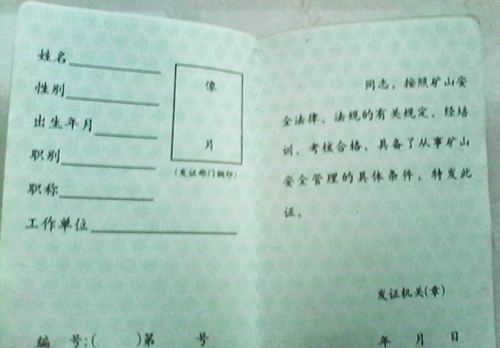 姓名
性别
出生年月
职别
职称
工作单位
像
片
(发证部门钢印)
编 号:( )第 号
同志，按照矿山安
全法律、法规的有关规定，经培
训、考核合格，具备了从事矿山
安全管理的具体条件，特发此
证。
发证机关(章)
年 月 日